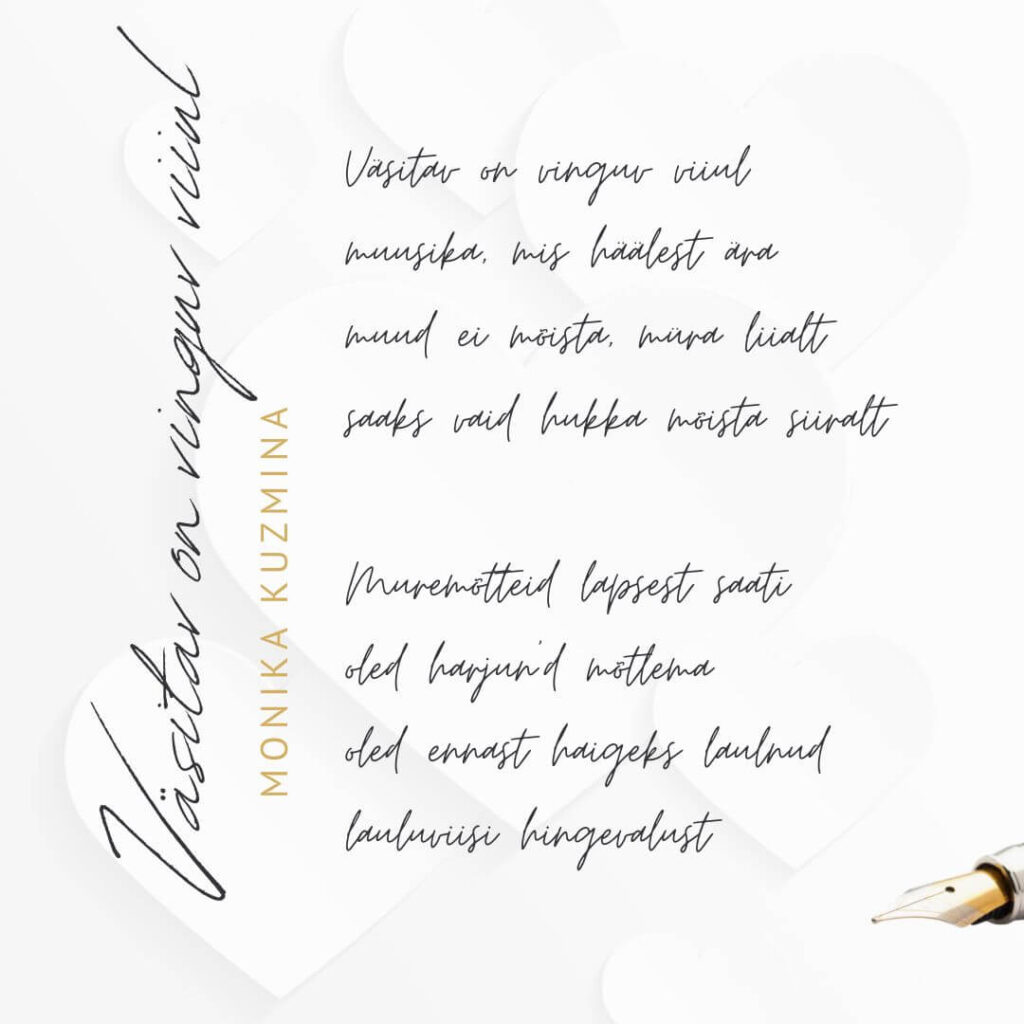 Väsitav on vinguv viiul
MONIKA KUZMINA
Väsitav on vinguv viiul
muusika, mis häälest ära
muud ei mõista, müra liialt
saaks vaid hukka mõista siiralt
Muremõtteid lapsest saati
oled harjun'd mõtlema
oled ennast haigeks laulnud
lauluviisi hingevalust